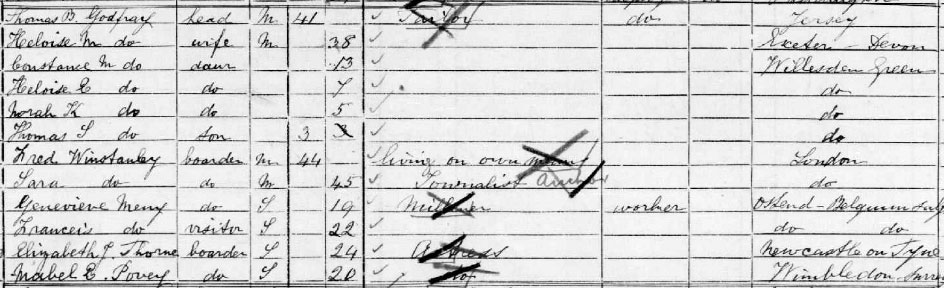 Thomas B. Godfray head M 41 Tailor do Jersey
Heloise M do wife M 38 Exeter - Devon
Constance M do daur 13 Willesden Green
Heloise E do do 7 do
Norah K do do 5 do
Thomas S do son 3 do
Fred Winstanley boarder M 44 living on own London
Sara do do M 45 Journalist Author do
Genevieve Meny do S 19 Milliner worker Ostend - Belgium
Francein do visitor S 22 do do
Elizabeth J. Thorne boarder S 24 Actress Newcastle on Tyne
Mabel E. Povey do S 20 do Wimbledon Surrey